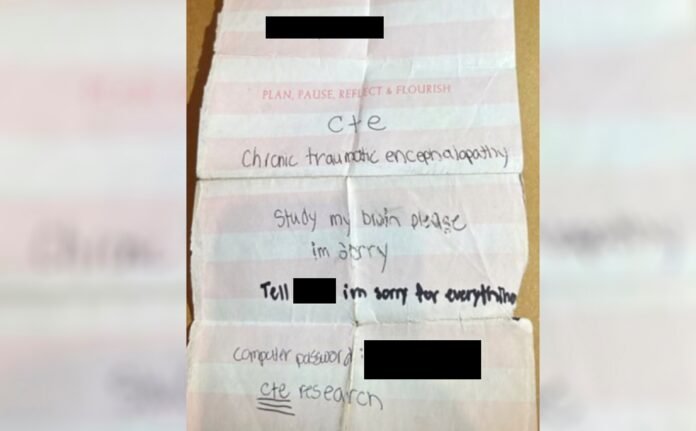 PLAN, PAUSE, REFLECT & FLOURISH
cte
Chronic traumatic encephalopathy
Study my brain please
im sorry
Tell im sorry for everything
computer password:
cte research